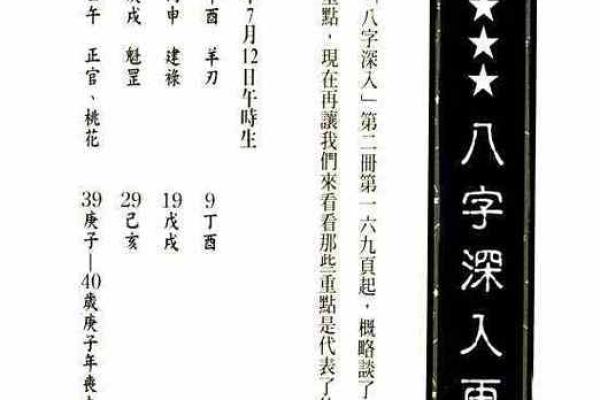 ★★★八字深入
「八字深入」第二冊第一六九頁起，概略談了
重點，現在再讓我們來看看那些重點是代表了
年7月12日午時生
酉 羊刃 9丁酉
申 建祿 19戊戌
戌 魁罡 29己亥
午 正官、桃花 39庚子—40歲庚子年喪